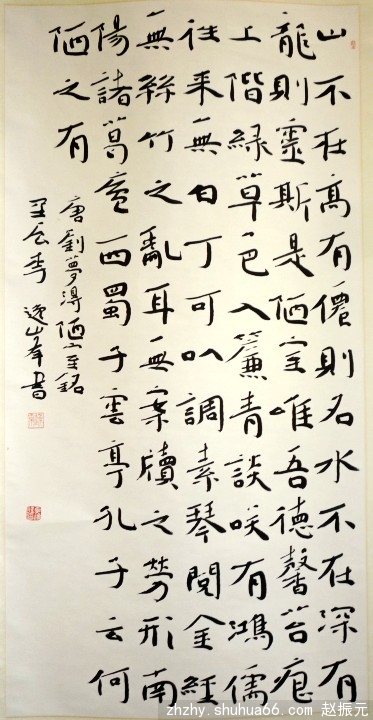 山不在高有僊則名水不在深有
龍則靈斯是陋室唯吾德馨苔痕
上階綠草色入簾青談咲有鴻儒
往来無白丁可以調素琴閱金經
無絲竹之亂耳無案牘之勞形南
陽諸葛廬西蜀子雲亭孔子云何
陋之有
唐劉夢得陋室銘
壬辰季逸峯書
zhzhy.shuhua66.com 赵振元